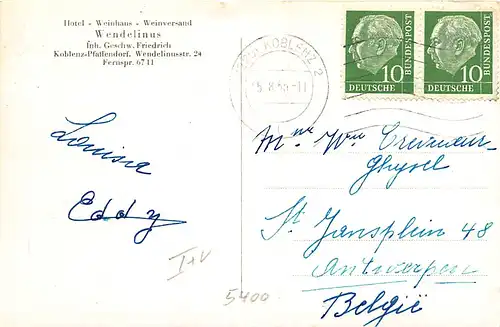 Hotel - Weinhaus - Weinversand
Wendelinus
Inh. Geschw. Friedrich
Koblenz-Pfaffendorf, Wendelinusstr. 24
Fernspr. 6711
KOBLENZ 2
10
DEUTSCHE
BUNDESPOST
10
DEUTSCHE
BUNDESPOST
Louisa
Eddy
Ghysel
St Jansplein 48
Antwerpen
België
5400